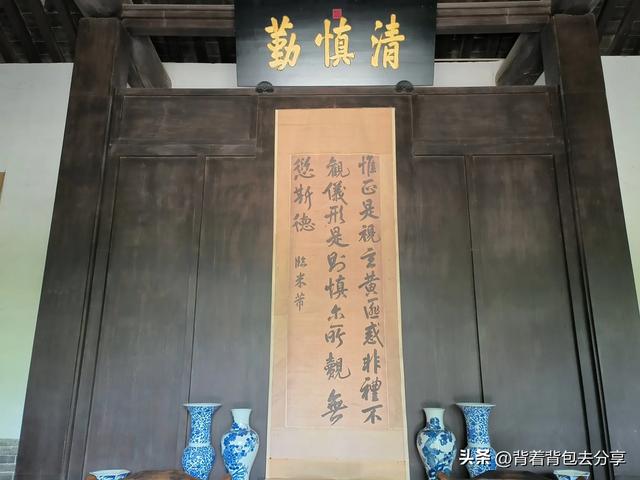 清慎勤
惟正是視主黃匪惑非禮不
觀儀形是則慎尓所觀無
愆斯德
臨米芾
头条 @背着背包去分享